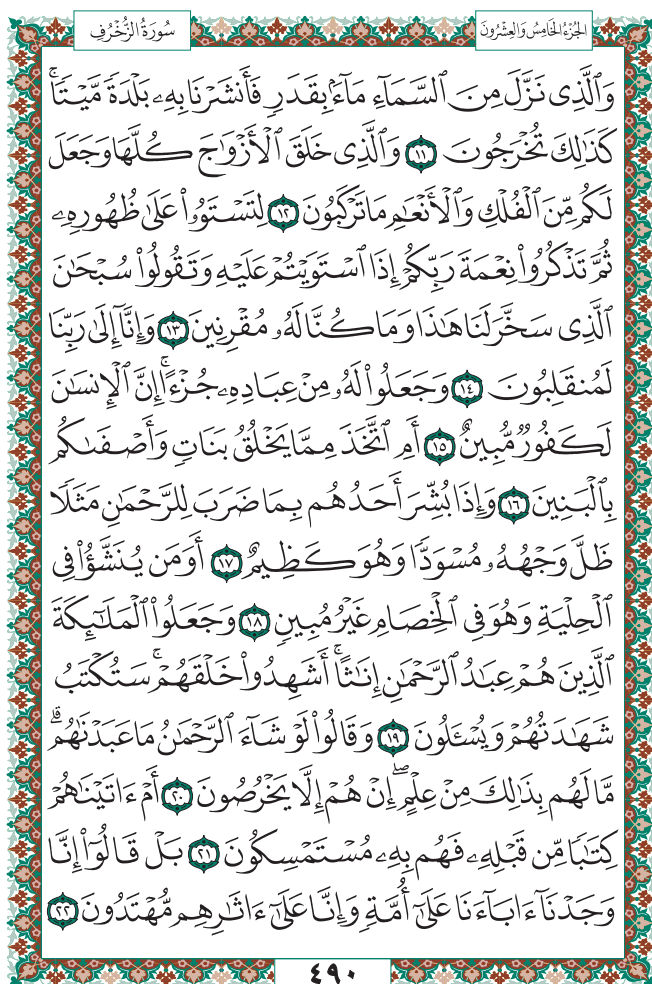 سُورَةُ الزُّخْرُفِ
الجُزْءُ الخَامِسُ وَالعِشْرُونَ
وَالَّذِى نَزَّلَ مِنَ السَّمَآءِ مَآءَۢ بِقَدَرٍ فَأَنشَرْنَا بِهِۦ بَلْدَةً مَّيْتًاۚ
كَذَٰلِكَ تُخْرَجُونَ ١١ وَالَّذِى خَلَقَ الْأَزْوَٰجَ كُلَّهَا وَجَعَلَ
لَكُم مِّنَ الْفُلْكِ وَالْأَنْعَٰمِ مَا تَرْكَبُونَ ١٢ لِتَسْتَوُۥا۟ عَلَىٰ ظُهُورِهِۦ
ثُمَّ تَذْكُرُوا۟ نِعْمَةَ رَبِّكُمْ إِذَا اسْتَوَيْتُمْ عَلَيْهِ وَتَقُولُوا۟ سُبْحَٰنَ
الَّذِى سَخَّرَ لَنَا هَٰذَا وَمَا كُنَّا لَهُۥ مُقْرِنِينَ ١٣ وَإِنَّآ إِلَىٰ رَبِّنَا
لَمُنقَلِبُونَ ١٤ وَجَعَلُوا۟ لَهُۥ مِنْ عِبَادِهِۦ جُزْءًاۚ إِنَّ الْإِنسَٰنَ
لَكَفُورٌ مُّبِينٌ ١٥ أَمِ اتَّخَذَ مِمَّا يَخْلُقُ بَنَاتٍ وَأَصْفَىٰكُم
بِالْبَنِينَ ١٦ وَإِذَا بُشِّرَ أَحَدُهُم بِمَا ضَرَبَ لِلرَّحْمَٰنِ مَثَلًا
ظَلَّ وَجْهُهُۥ مُسْوَدًّا وَهُوَ كَظِيمٌ ١٧ أَوَمَن يُنَشَّؤُا۟ فِى
الْحِلْيَةِ وَهُوَ فِى الْخِصَامِ غَيْرُ مُبِينٍ ١٨ وَجَعَلُوا۟ الْمَلَٰٓئِكَةَ
الَّذِينَ هُمْ عِبَٰدُ الرَّحْمَٰنِ إِنَٰثًاۚ أَشَهِدُوا۟ خَلْقَهُمْۚ سَتُكْتَبُ
شَهَٰدَتُهُمْ وَيُسْـَٔلُونَ ١٩ وَقَالُوا۟ لَوْ شَآءَ الرَّحْمَٰنُ مَا عَبَدْنَٰهُمۗ
مَّا لَهُم بِذَٰلِكَ مِنْ عِلْمٍۖ إِنْ هُمْ إِلَّا يَخْرُصُونَ ٢٠ أَمْ ءَاتَيْنَٰهُمْ
كِتَٰبًا مِّن قَبْلِهِۦ فَهُم بِهِۦ مُسْتَمْسِكُونَ ٢١ بَلْ قَالُوٓا۟ إِنَّا
وَجَدْنَآ ءَابَآءَنَا عَلَىٰٓ أُمَّةٍ وَإِنَّا عَلَىٰٓ ءَاثَٰرِهِم مُّهْتَدُونَ ٢٢
٤٩٠